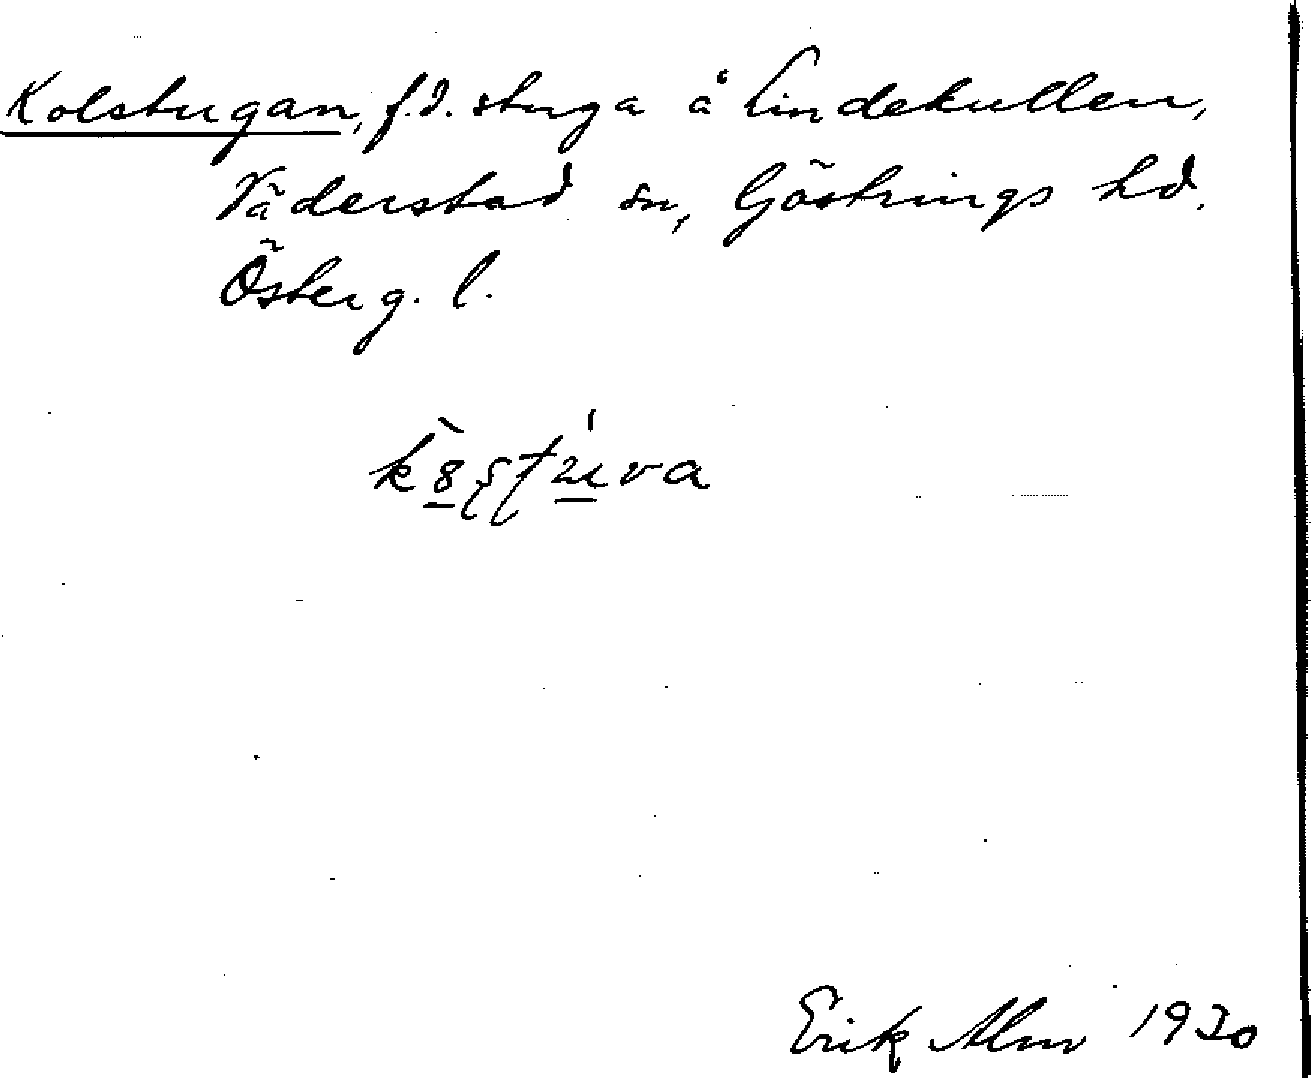 Kolstugan, f.d. stuga å Lindekullen,
Väderstad sn, Göstrings hd.
Österg. l.
Erik Alm 1930